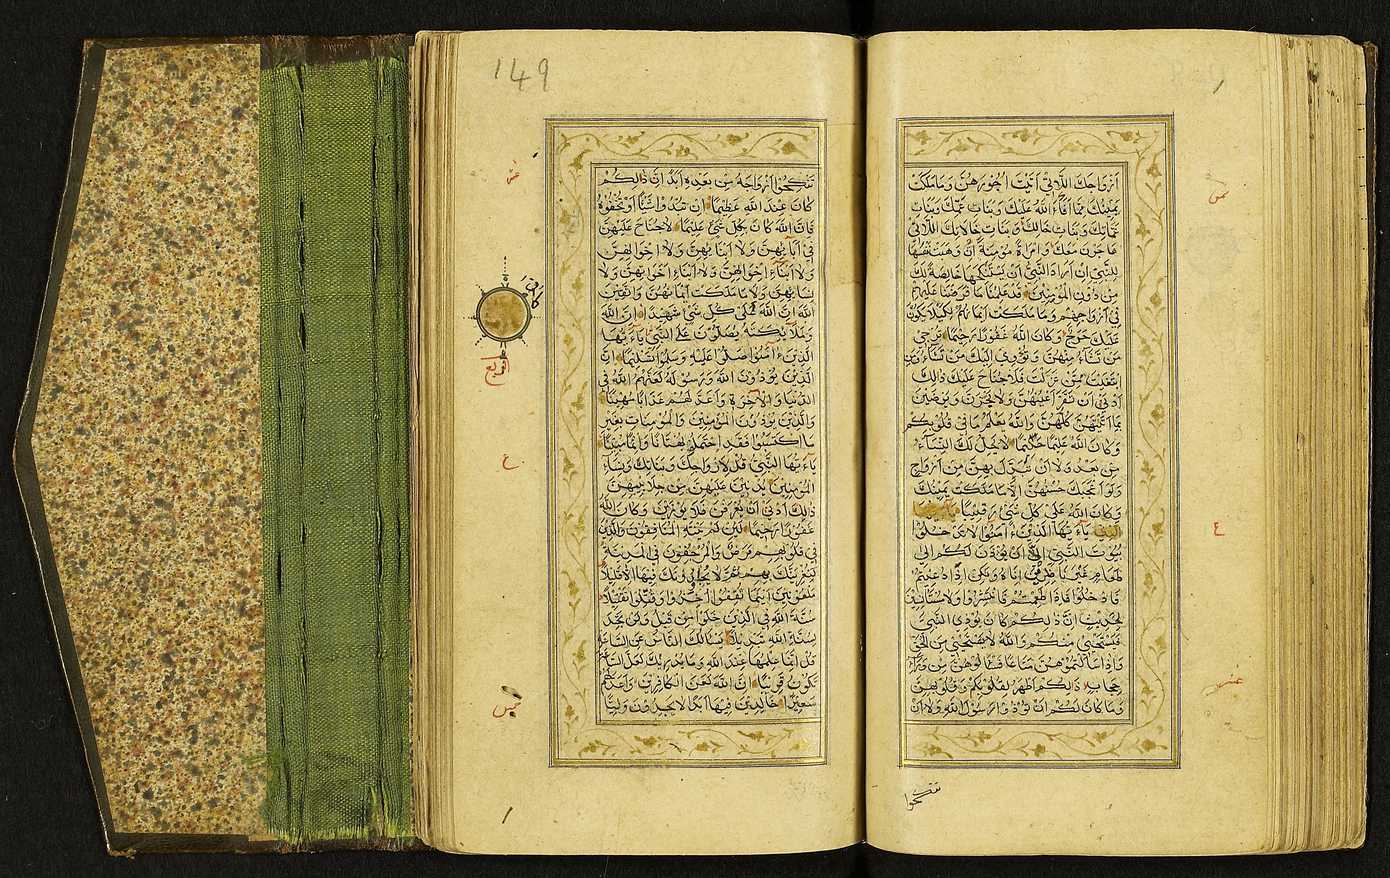 أزواجك اللاتي آتيت أجورهن وما ملكت
يمينك مما أفاء الله عليك وبنات عمك وبنات
عماتك وبنات خالك وبنات خالاتك اللاتي
هاجرن معك وامرأة مؤمنة إن وهبت نفسها
للنبي إن أراد النبي أن يستنكحها خالصة لك
من دون المؤمنين قد علمنا ما فرضنا عليهم
في أزواجهم وما ملكت أيمانهم لكيلا يكون
عليك حرج وكان الله غفورا رحيما ترجي
من تشاء منهن وتؤوي إليك من تشاء ومن
ابتغيت ممن عزلت فلا جناح عليك ذالك
أدنى أن تقر أعينهن ولا يحزن ويرضين
بما آتيتهن كلهن والله يعلم ما في قلوبكم
وكان الله عليما حليما لا يحل لك النساء
من بعد ولا أن تبدل بهن من أزواج
ولو أعجبك حسنهن إلا ما ملكت يمينك
وكان الله على كل شيء رقيبا
يا أيها الذين آمنوا لا تدخلوا
ع
بيوت النبي إلا أن يؤذن لكم إلى
طعام غير ناظرين إناه ولكن إذا دعيتم
فادخلوا فإذا طعمتم فانتشروا ولا مستأنسين
لحديث إن ذالكم كان يؤذي النبي
فيستحيي منكم والله لا يستحيي من الحق
وإذا سألتموهن متاعا فسألوهن من وراء
حجاب ذالكم أطهر لقلوبكم وقلوبهن
عشر
وما كان لكم أن تؤذوا رسول الله ولا أن
تنكحوا
149
تنكحوا أزواجه من بعده أبدا إن ذالكم
كان عند الله عظيما إن تبدوا شيئا أو تخفوه
فإن الله كان بكل شيء عليما لا جناح عليهن
في آبائهن ولا أبنائهن ولا إخوانهن
ولا أبناء إخوانهن ولا أبناء أخواتهن ولا
نسائهن ولا ما ملكت أيمانهن واتقين
الله إن الله على كل شيء شهيدا إن الله
وملائكته يصلون على النبي يا أيها
الذين آمنوا صلوا عليه وسلموا تسليما إن
الذين يؤذون الله ورسوله لعنهم الله في
الدنيا والآخرة وأعد لهم عذابا مهينا
والذين يؤذون المؤمنين والمؤمنات بغير
ما اكتسبوا فقد احتملوا بهتانا وإثما مبينا
يا أيها النبي قل لأزواجك وبناتك ونساء
المؤمنين يدنين عليهن من جلابيبهن
ذالك أدنى أن يعرفن فلا يؤذين وكان الله
غفورا رحيما لئن لم ينته المنافقون والذين
في قلوبهم مرض والمرجفون في المدينة
لنغرينك بهم ثم لا يجاورونك فيها إلا قليلا
ملعونين أينما ثقفوا أخذوا وقتلوا تقتيلا
سنة الله في الذين خلوا من قبل ولن تجد
لسنة الله تبديلا يسألك الناس عن الساعة
قل إنما علمها عند الله وما يدريك لعل الساعة
تكون قريبا إن الله لعن الكافرين وأعد لهم
سعيرا خالدين فيها أبدا لا يجدون وليا